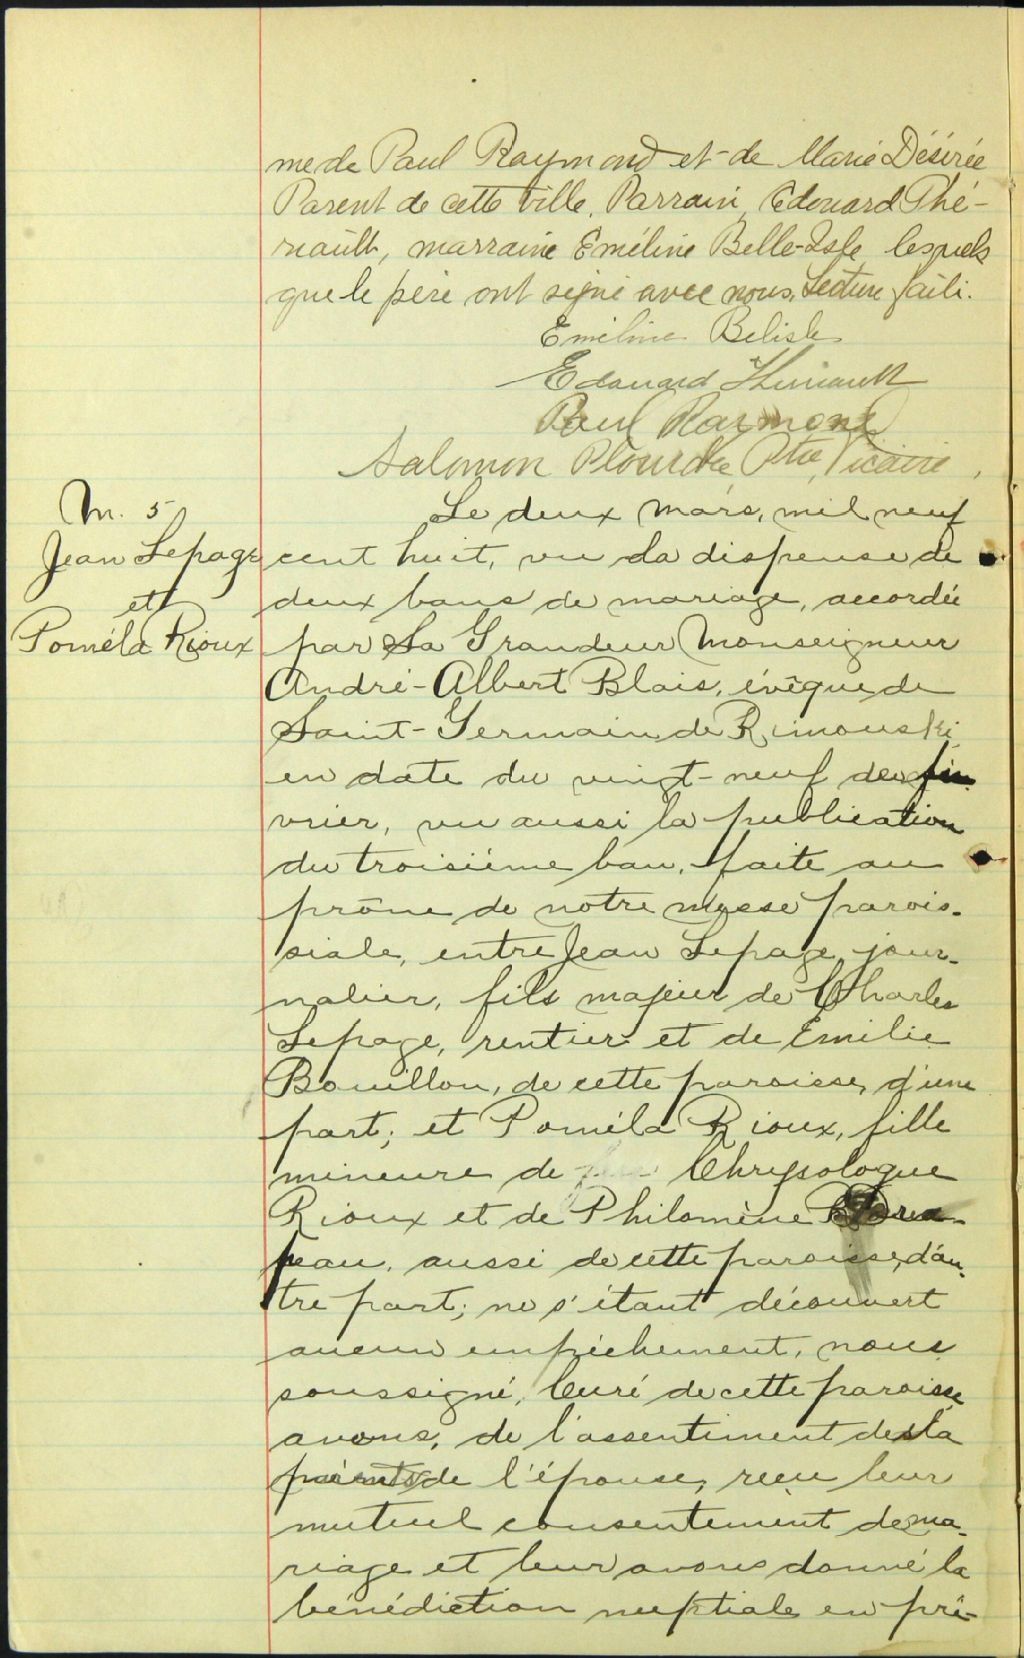 me de Paul Raymond et de Marie Désirée
Parent de cette ville. Parrain, Edouard Thé-
riault, marraine Eméline Belle-Isle lesquels
que le père ont signé avec nous. Lecture faite.
Emeline Belisle
Edouard Theriault
Paul Raymond
Salomon Plourde, Ptre, Vicaire,
M. 5
Jean Lepage
et
Poméla Rioux
Le deux mars, mil neuf
cent huit, vu la dispense de
deux bans de mariage, accordée
par Sa Grandeur Monseigneur
André-Albert Blais, évêque de
Saint-Germain de Rimouski
en date du vingt-neuf de fé-
vrier, vu aussi la publication
du troisième ban, faite au
prône de notre messe parois-
siale, entre Jean Lepage, jour-
nalier, fils majeur de Charles
Lepage, rentier et de Emilie
Bouillon, de cette paroisse, d'une
part; et Poméla Rioux, fille
mineure de Chrysologue
Rioux et de Philomène
peau, aussi de cette paroisse, d'au-
tre part; ne s'étant découvert
aucun empêchement, nous
soussigné, Curé de cette paroisse
avons, de l'assentiment des
parents de l'épouse, reçu leur
mutuel consentement de ma-
riage et leur avons donné la
bénédiction nuptiale en pré-